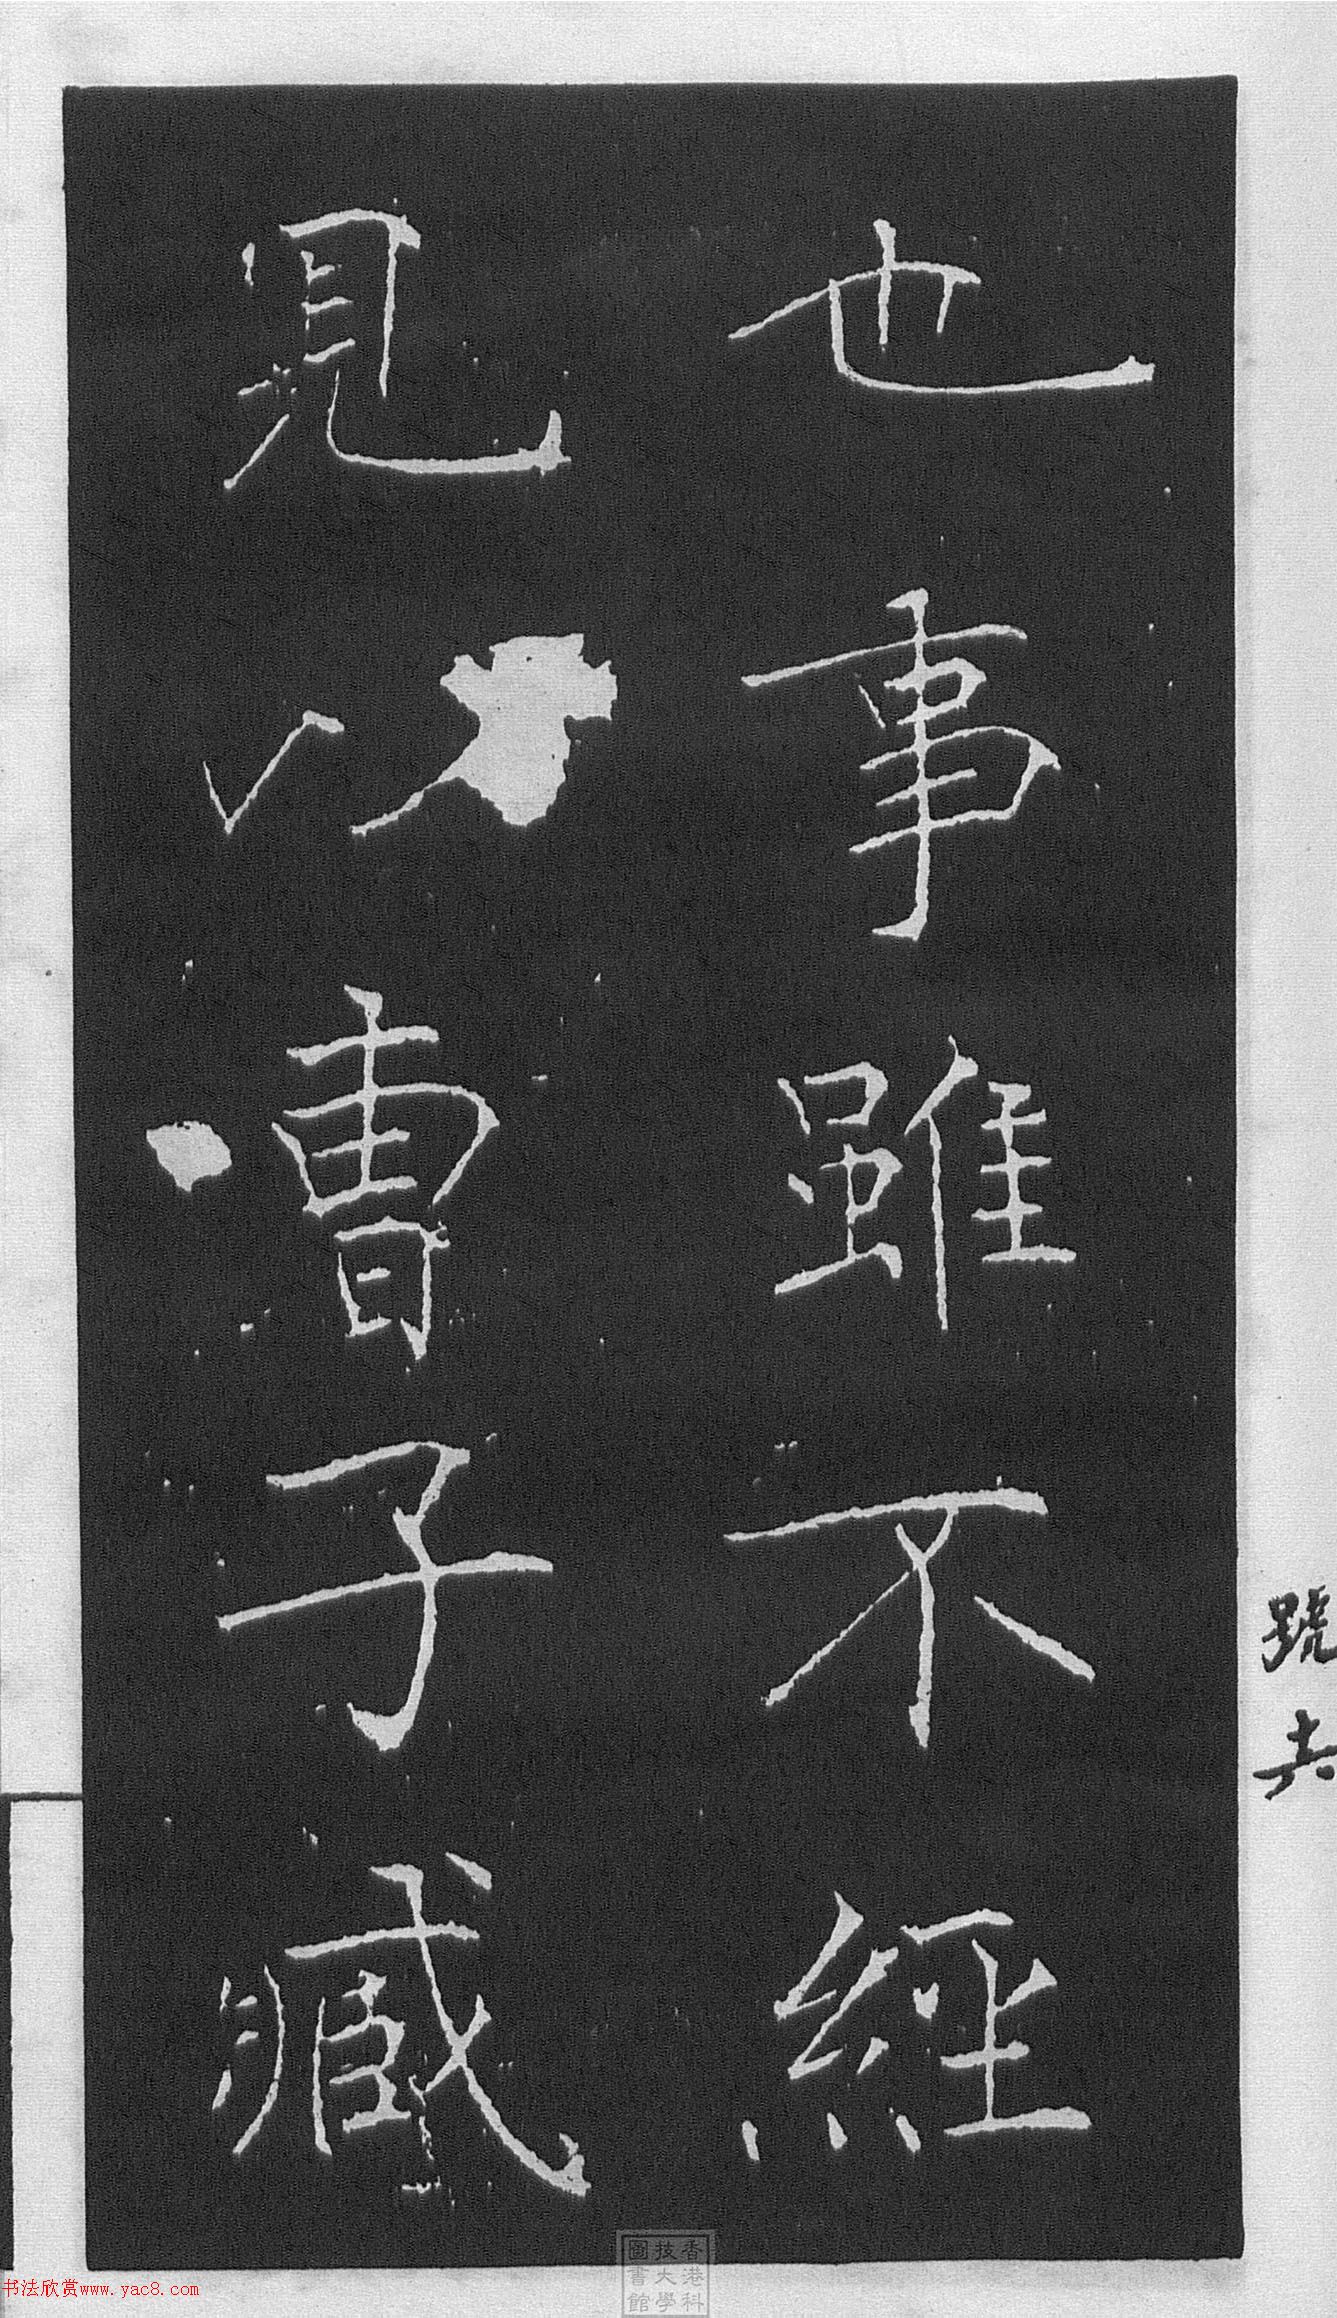 也事雖不經
見以曹子臧
號共
香港
科技大學
圖書館
书法欣赏www.yac8.com